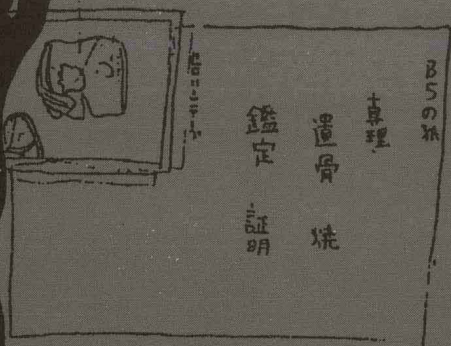 B5の紙
真理
遺骨 焼
鑑定 証明